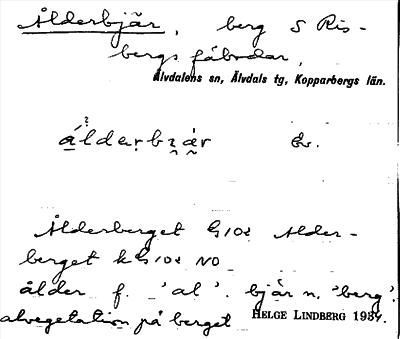 Ålderbjär, berg S Ris-
bergs fäbodar,
Älvdalens sn, Älvdals tg, Kopparbergs län.
Ålderberget G102 Alder-
berget kG102 NO
ålder f. 'al'. bjär n. 'berg'.
alvegetation på berget HELGE LINDBERG 1934.